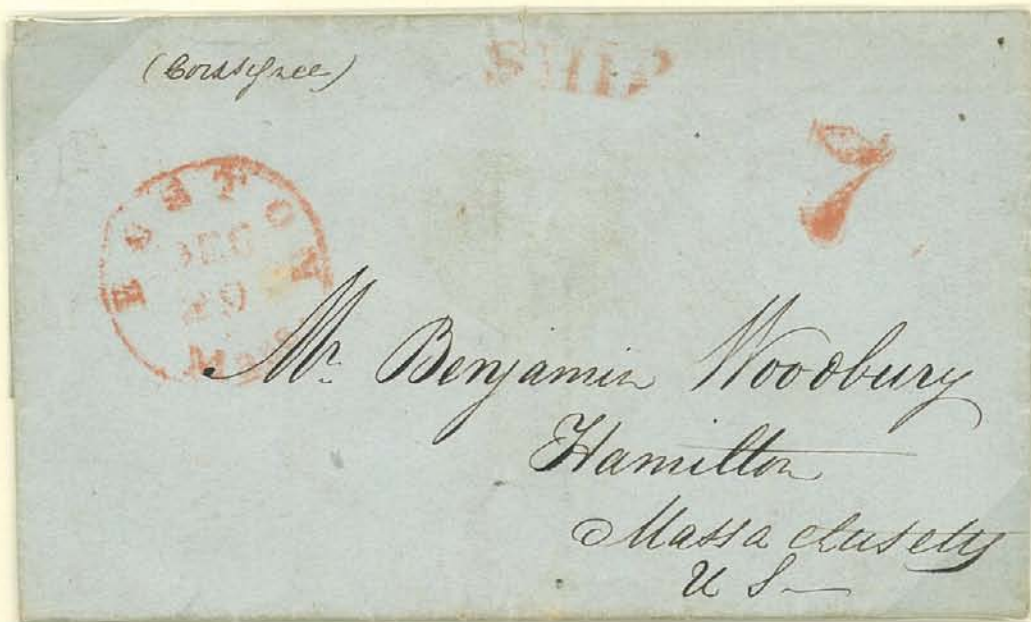 (Consignee)
SHIP
7
BOSTON
DEC
29
Mass
Mr. Benjamin Woodbury
Hamilton
Massachusetts
U S